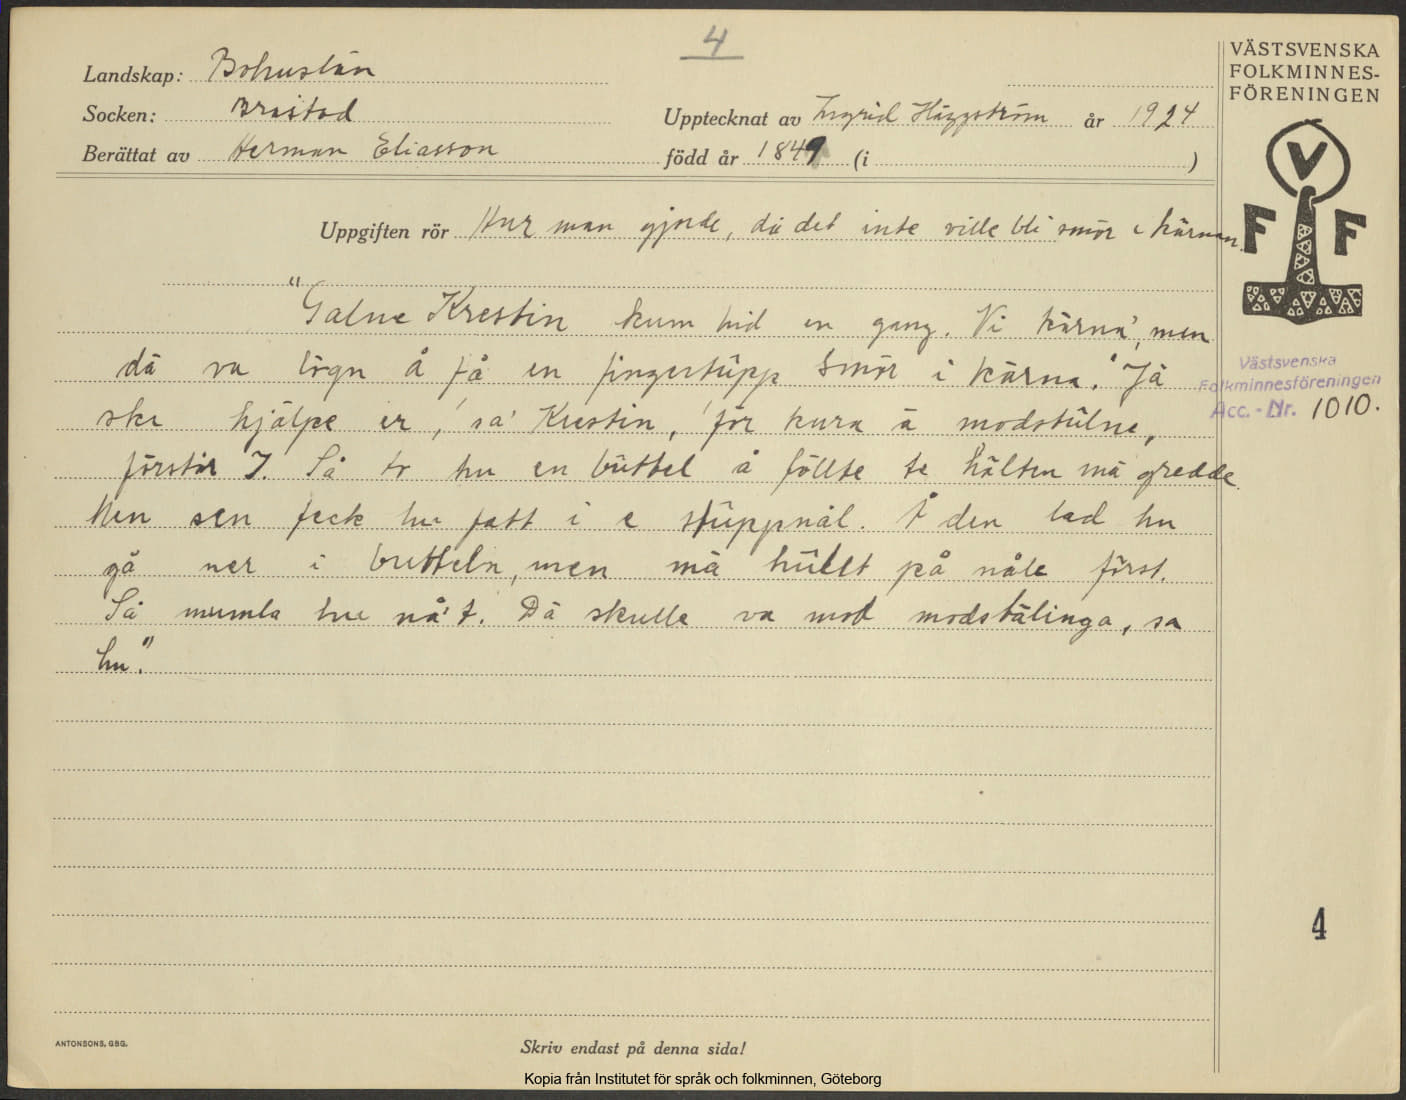 4
VÄSTSVENSKA
FOLKMINNES-
FÖRENINGEN
Landskap: Bohuslän
Socken: Brastad
Upptecknat av Ingrid Häggström år 1924
Berättat av Herman Eliasson född år 1849 (i )
V
F F
Uppgiften rör Hur man gjorde, då det inte ville bli smör i kärnan.
"Galne Krestin kum hid en gang. Vi kärna', men
dä va lögn å få en fingertüpp smör i kärna. 'Jä
ska hjälpe er,' sa' Krestin, 'för kura ä modstülne,
förstår I. Så to hu en büttel å föllte te hälten mä gredde.
Men sen feck hu fatt i e stüppnål. Å den lad hu
gå ner i butteln, men mä hüllt på nåle först.
Så mumla hue nå't. Dä skulle va mod modstälinga, sa
hu."
Västsvenska
Folkminnesföreningen
Acc.-Nr. 1010.
4
ANTONSONS, GBG.
Skriv endast på denna sida!
Kopia från Institutet för språk och folkminnen, Göteborg